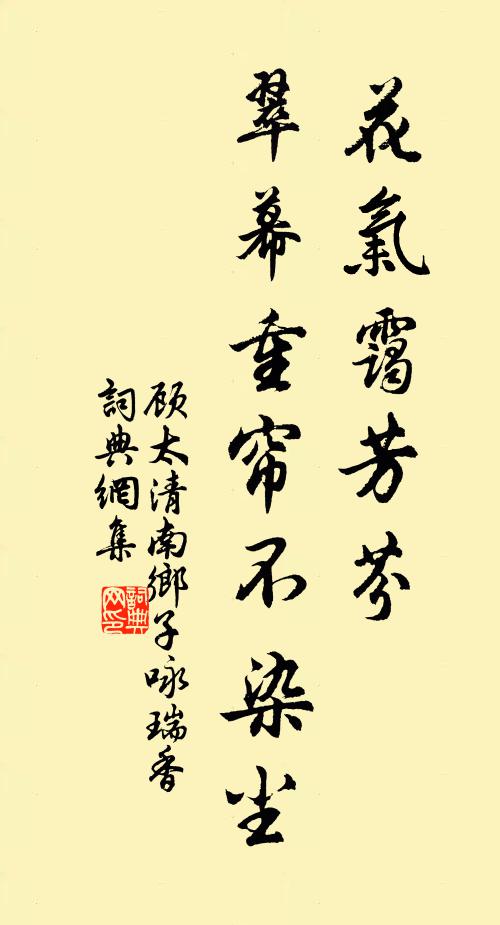 花氣靄芳芬
翠幕重帘不染尘
顾太清南鄉子咏瑞香
詞典網集
詞典网印